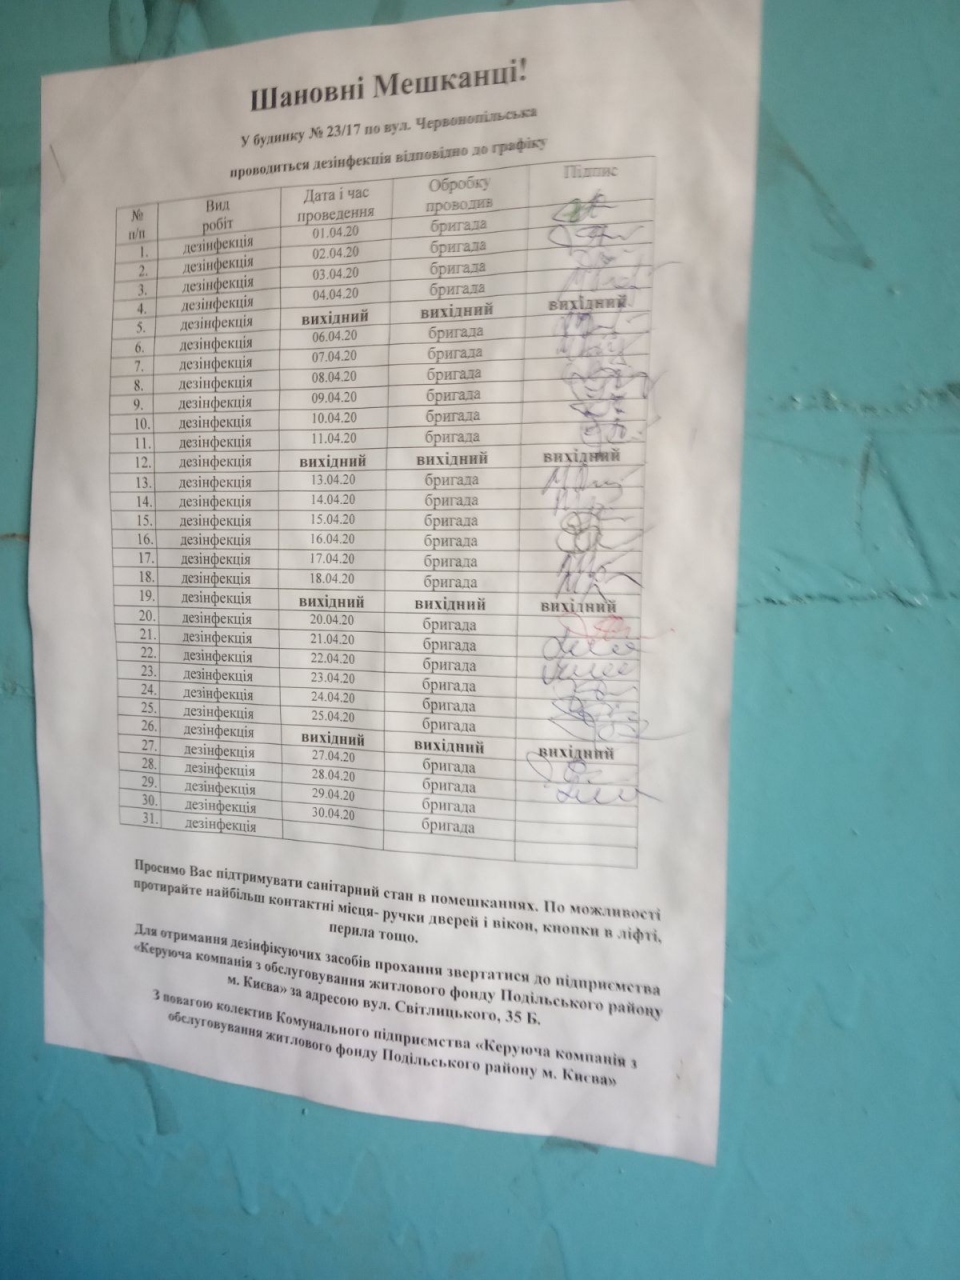 Шановні Мешканці!
У будинку № 23/17 по вул. Червонопільська
проводиться дезінфекція відповідно до графіку
№ п/п Вид робіт Дата і час проведення Обробку проводив Підпис
1. дезінфекція 01.04.20 бригада
2. дезінфекція 02.04.20 бригада
3. дезінфекція 03.04.20 бригада
4. дезінфекція 04.04.20 бригада
5. дезінфекція вихідний вихідний вихідний
6. дезінфекція 06.04.20 бригада
7. дезінфекція 07.04.20 бригада
8. дезінфекція 08.04.20 бригада
9. дезінфекція 09.04.20 бригада
10. дезінфекція 10.04.20 бригада
11. дезінфекція 11.04.20 бригада
12. дезінфекція вихідний вихідний вихідний
13. дезінфекція 13.04.20 бригада
14. дезінфекція 14.04.20 бригада
15. дезінфекція 15.04.20 бригада
16. дезінфекція 16.04.20 бригада
17. дезінфекція 17.04.20 бригада
18. дезінфекція 18.04.20 бригада
19. дезінфекція вихідний вихідний вихідний
20. дезінфекція 20.04.20 бригада
21. дезінфекція 21.04.20 бригада
22. дезінфекція 22.04.20 бригада
23. дезінфекція 23.04.20 бригада
24. дезінфекція 24.04.20 бригада
25. дезінфекція 25.04.20 бригада
26. дезінфекція вихідний вихідний вихідний
27. дезінфекція 27.04.20 бригада
28. дезінфекція 28.04.20 бригада
29. дезінфекція 29.04.20 бригада
30. дезінфекція 30.04.20 бригада
31. дезінфекція
Просимо Вас підтримувати санітарний стан в помешканнях. По можливості
протирайте найбільш контактні місця- ручки дверей і вікон, кнопки в ліфті,
перила тощо.
Для отримання дезінфікуючих засобів прохання звертатися до підприємства
«Керуюча компанія з обслуговування житлового фонду Подільського району
м. Києва» за адресою вул. Світлицького, 35 Б.
З повагою колектив Комунального підприємства «Керуюча компанія з
обслуговування житлового фонду Подільського району м. Києва»